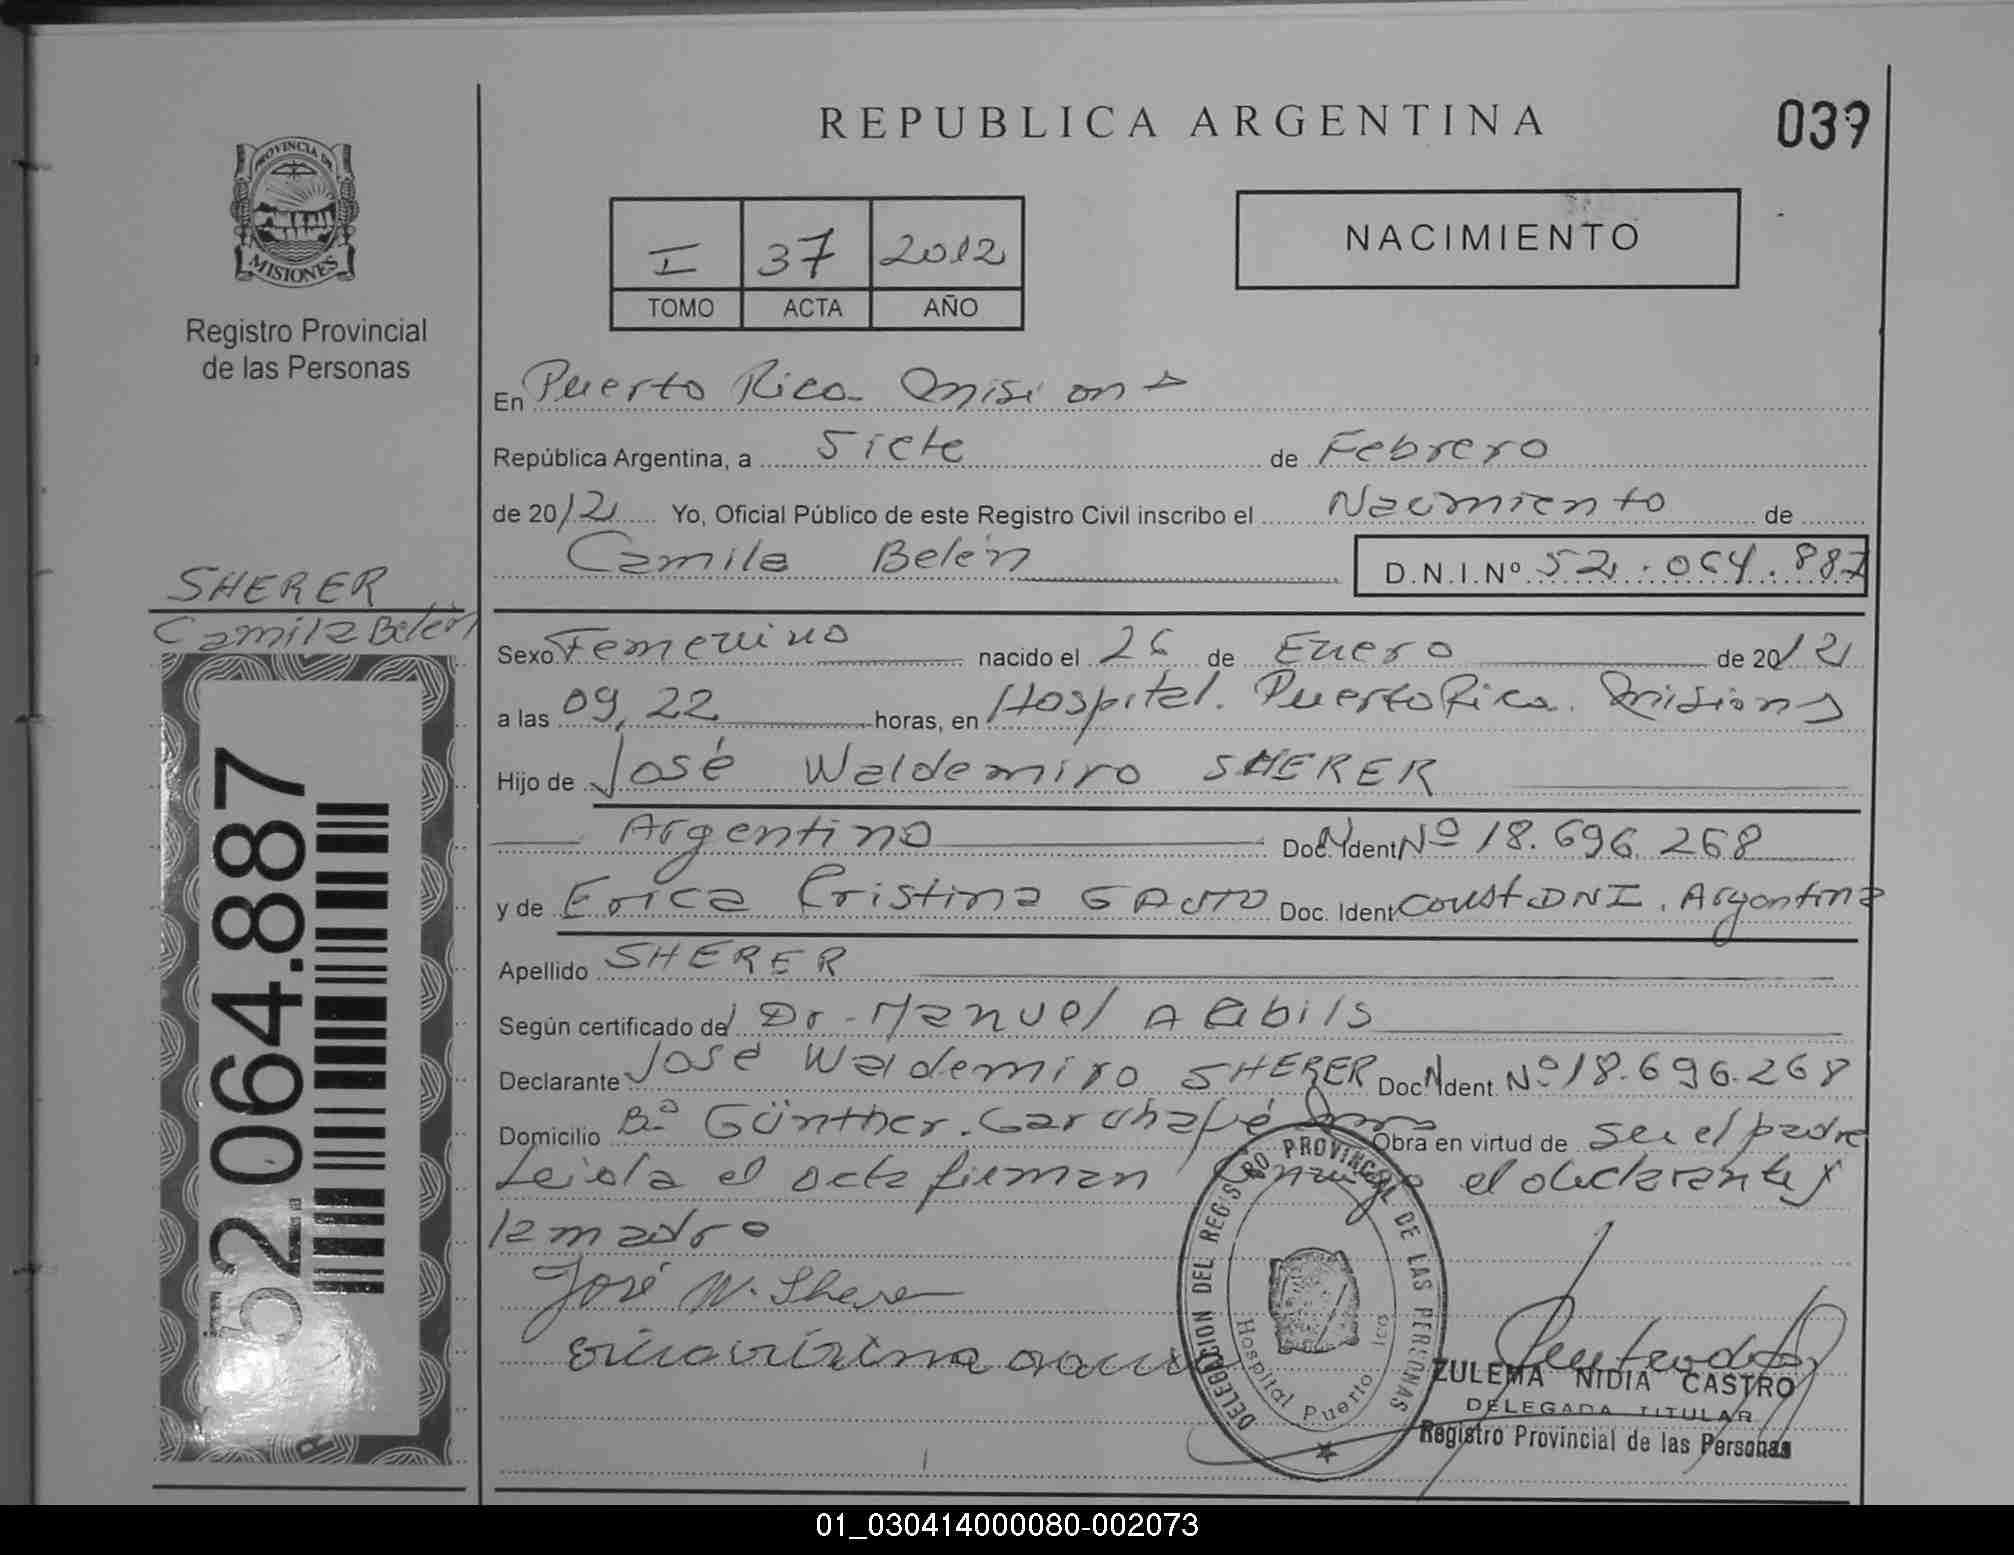 REPUBLICA ARGENTINA
039
PROVINCIA DE
MISIONES
Registro Provincial
de las Personas
I 37 2012
TOMO ACTA AÑO
NACIMIENTO
En Puerto Rico - Misiones
República Argentina, a Siete de Febrero
de 2012 Yo, Oficial Público de este Registro Civil inscribo el Nacimiento de
Camila Belén D.N.I.Nº 52.064.887
SHERER
Camila Belén
52.064.887
Sexo Femenino nacido el 26 de Enero de 2012
a las 09,22 horas, en Hospital. Puerto Rico. Misiones
Hijo de José Waldemiro SHERER
Argentino Doc. Ident Nº 18.696.268
y de Erica Cristina GAUTO Doc. Ident Const DNI. Argentina
Apellido SHERER
Según certificado del Dr. Manuel
Declarante José Waldemiro SHERER Doc. Ident. Nº 18.696.268
Domicilio Bº Günther. Garuhapé Obra en virtud de ser el padre
Leida el acta firman conmigo el declarante y
la madre
José W. Sherer
DELEGACION DEL REGISTRO PROVINCIAL DE LAS PERSONAS
Hospital Puerto ico
ZULEMA NIDIA CASTRO
DELEGADA TITULAR
Registro Provincial de las Personas
01_030414000080-002073